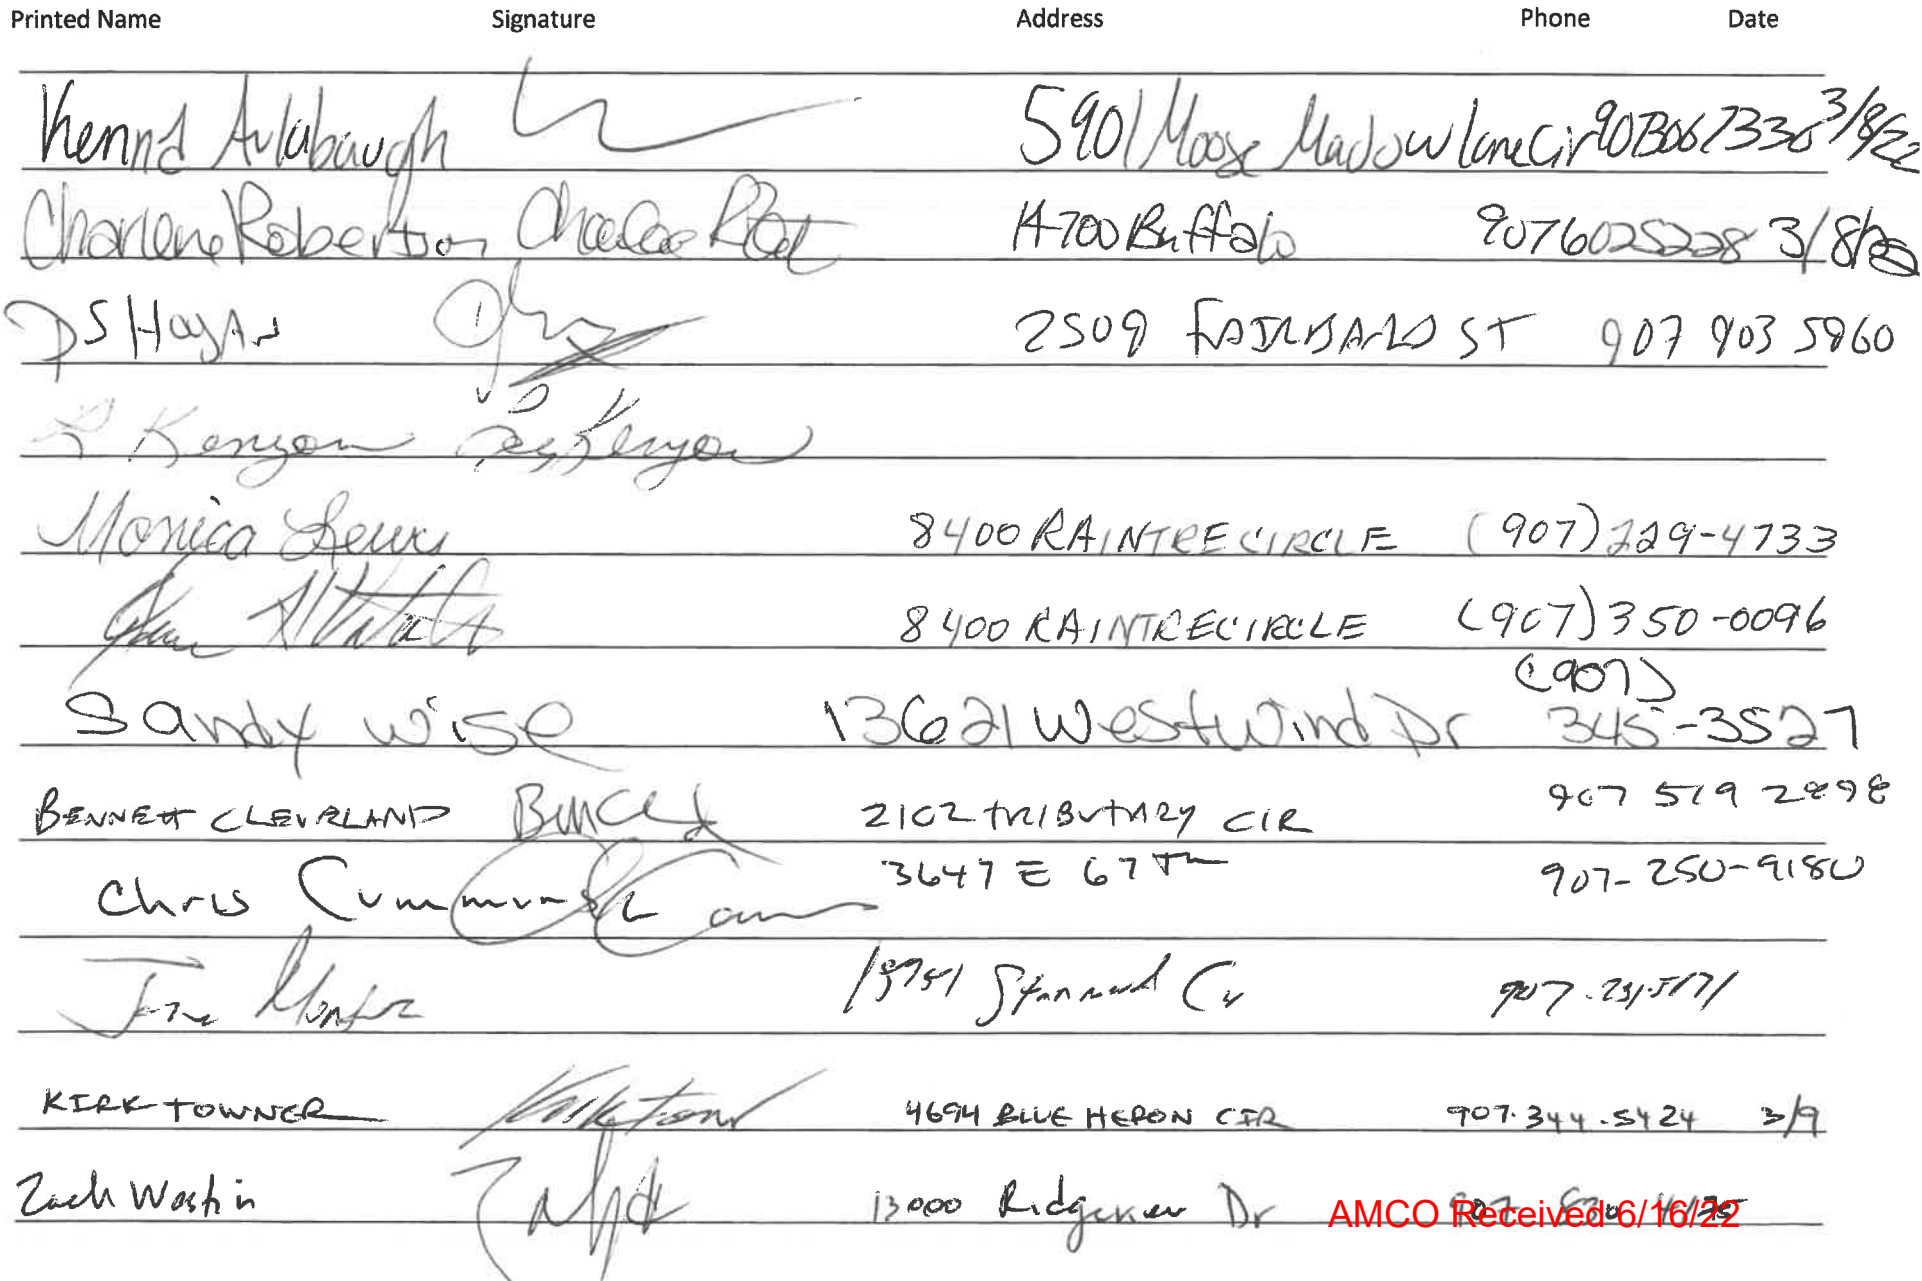 Printed Name Signature Address Phone Date
Kennd Aulabaugh 5901 Moose Madow lane Cir 3/8/22
Charlene Robertson 14700 Buffalo 9076025228 3/8/22
DS Hayes 2509 ST 907 903 5960
L Kenyon Kenyon
Monica Lewis 8400 RAINTRECIRCLE (907) 229-4733
8400 RAINTRECIRCLE (907) 350-0096
Sandy Wise 13621 Westwind Dr (907) 345-3527
BENNETT CLEVELAND 2102 TRIBUTARY CIR 907 519 2898
Chris Cummings 3647 E 67th 907-250-9180
907
KIRK TOWNER Kirk Towner 4694 BLUE HERON CIR 907.344.5424 3/9
Zach Westin 13000 Ridgeview Dr
AMCO Received 6/16/22